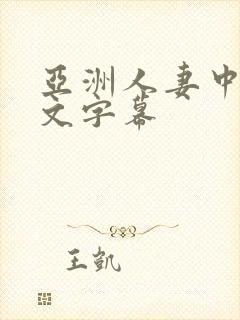 亞洲人妻中
文字幕
王凱